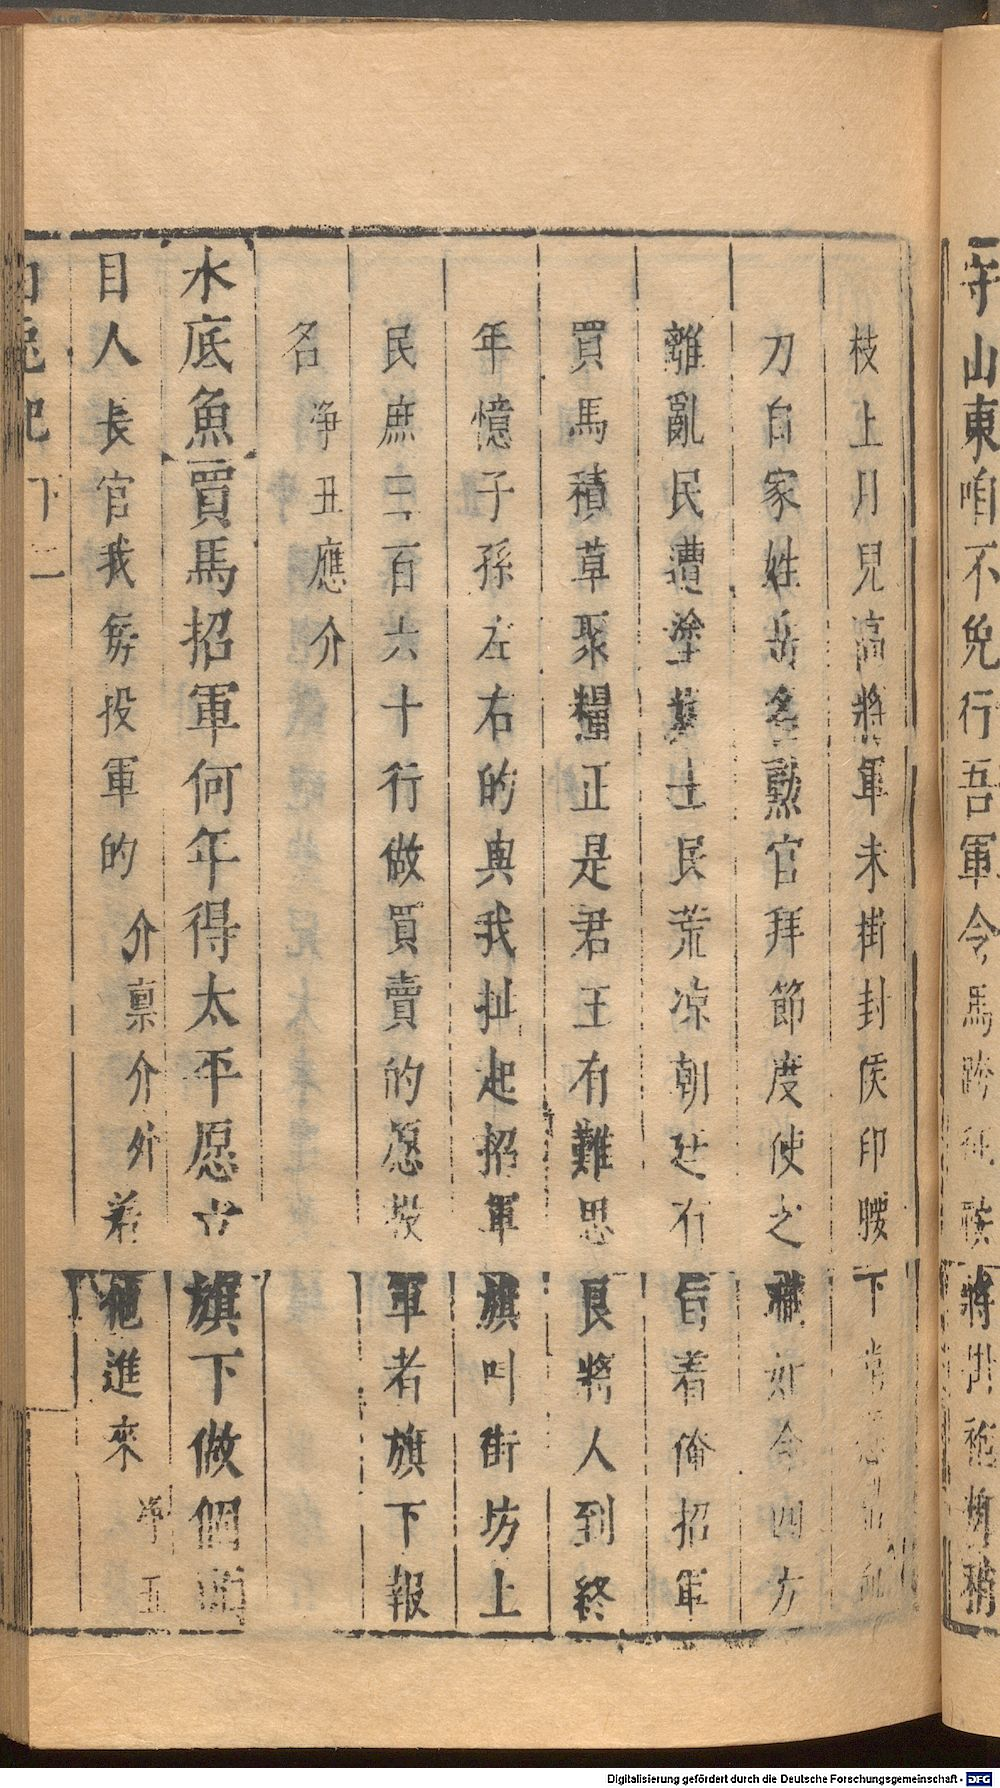 守山東咱不免行吾軍令馬跨征將
枝上月兒高將軍未掛封侯印腰下常
刀自家姓岳名勲官拜節度使之職如今四方
離亂民遭塗炭土民荒凉朝廷有旨着俺招軍
買馬積草聚糧正是君王有難思良將人到終
年憶子孫左右的與我扯起招軍旗叫街坊上
民庶三百六十行做買賣的愿投軍者旗下報
名 净丑應介
水底魚 買馬招軍何年得太平愿立旗下做個頭
目人 長官我每投軍的 介稟介外 着他進來 净丑
白兔記 下 二
Digitalisierung gefördert durch die Deutsche Forschungsgemeinschaft - DFG